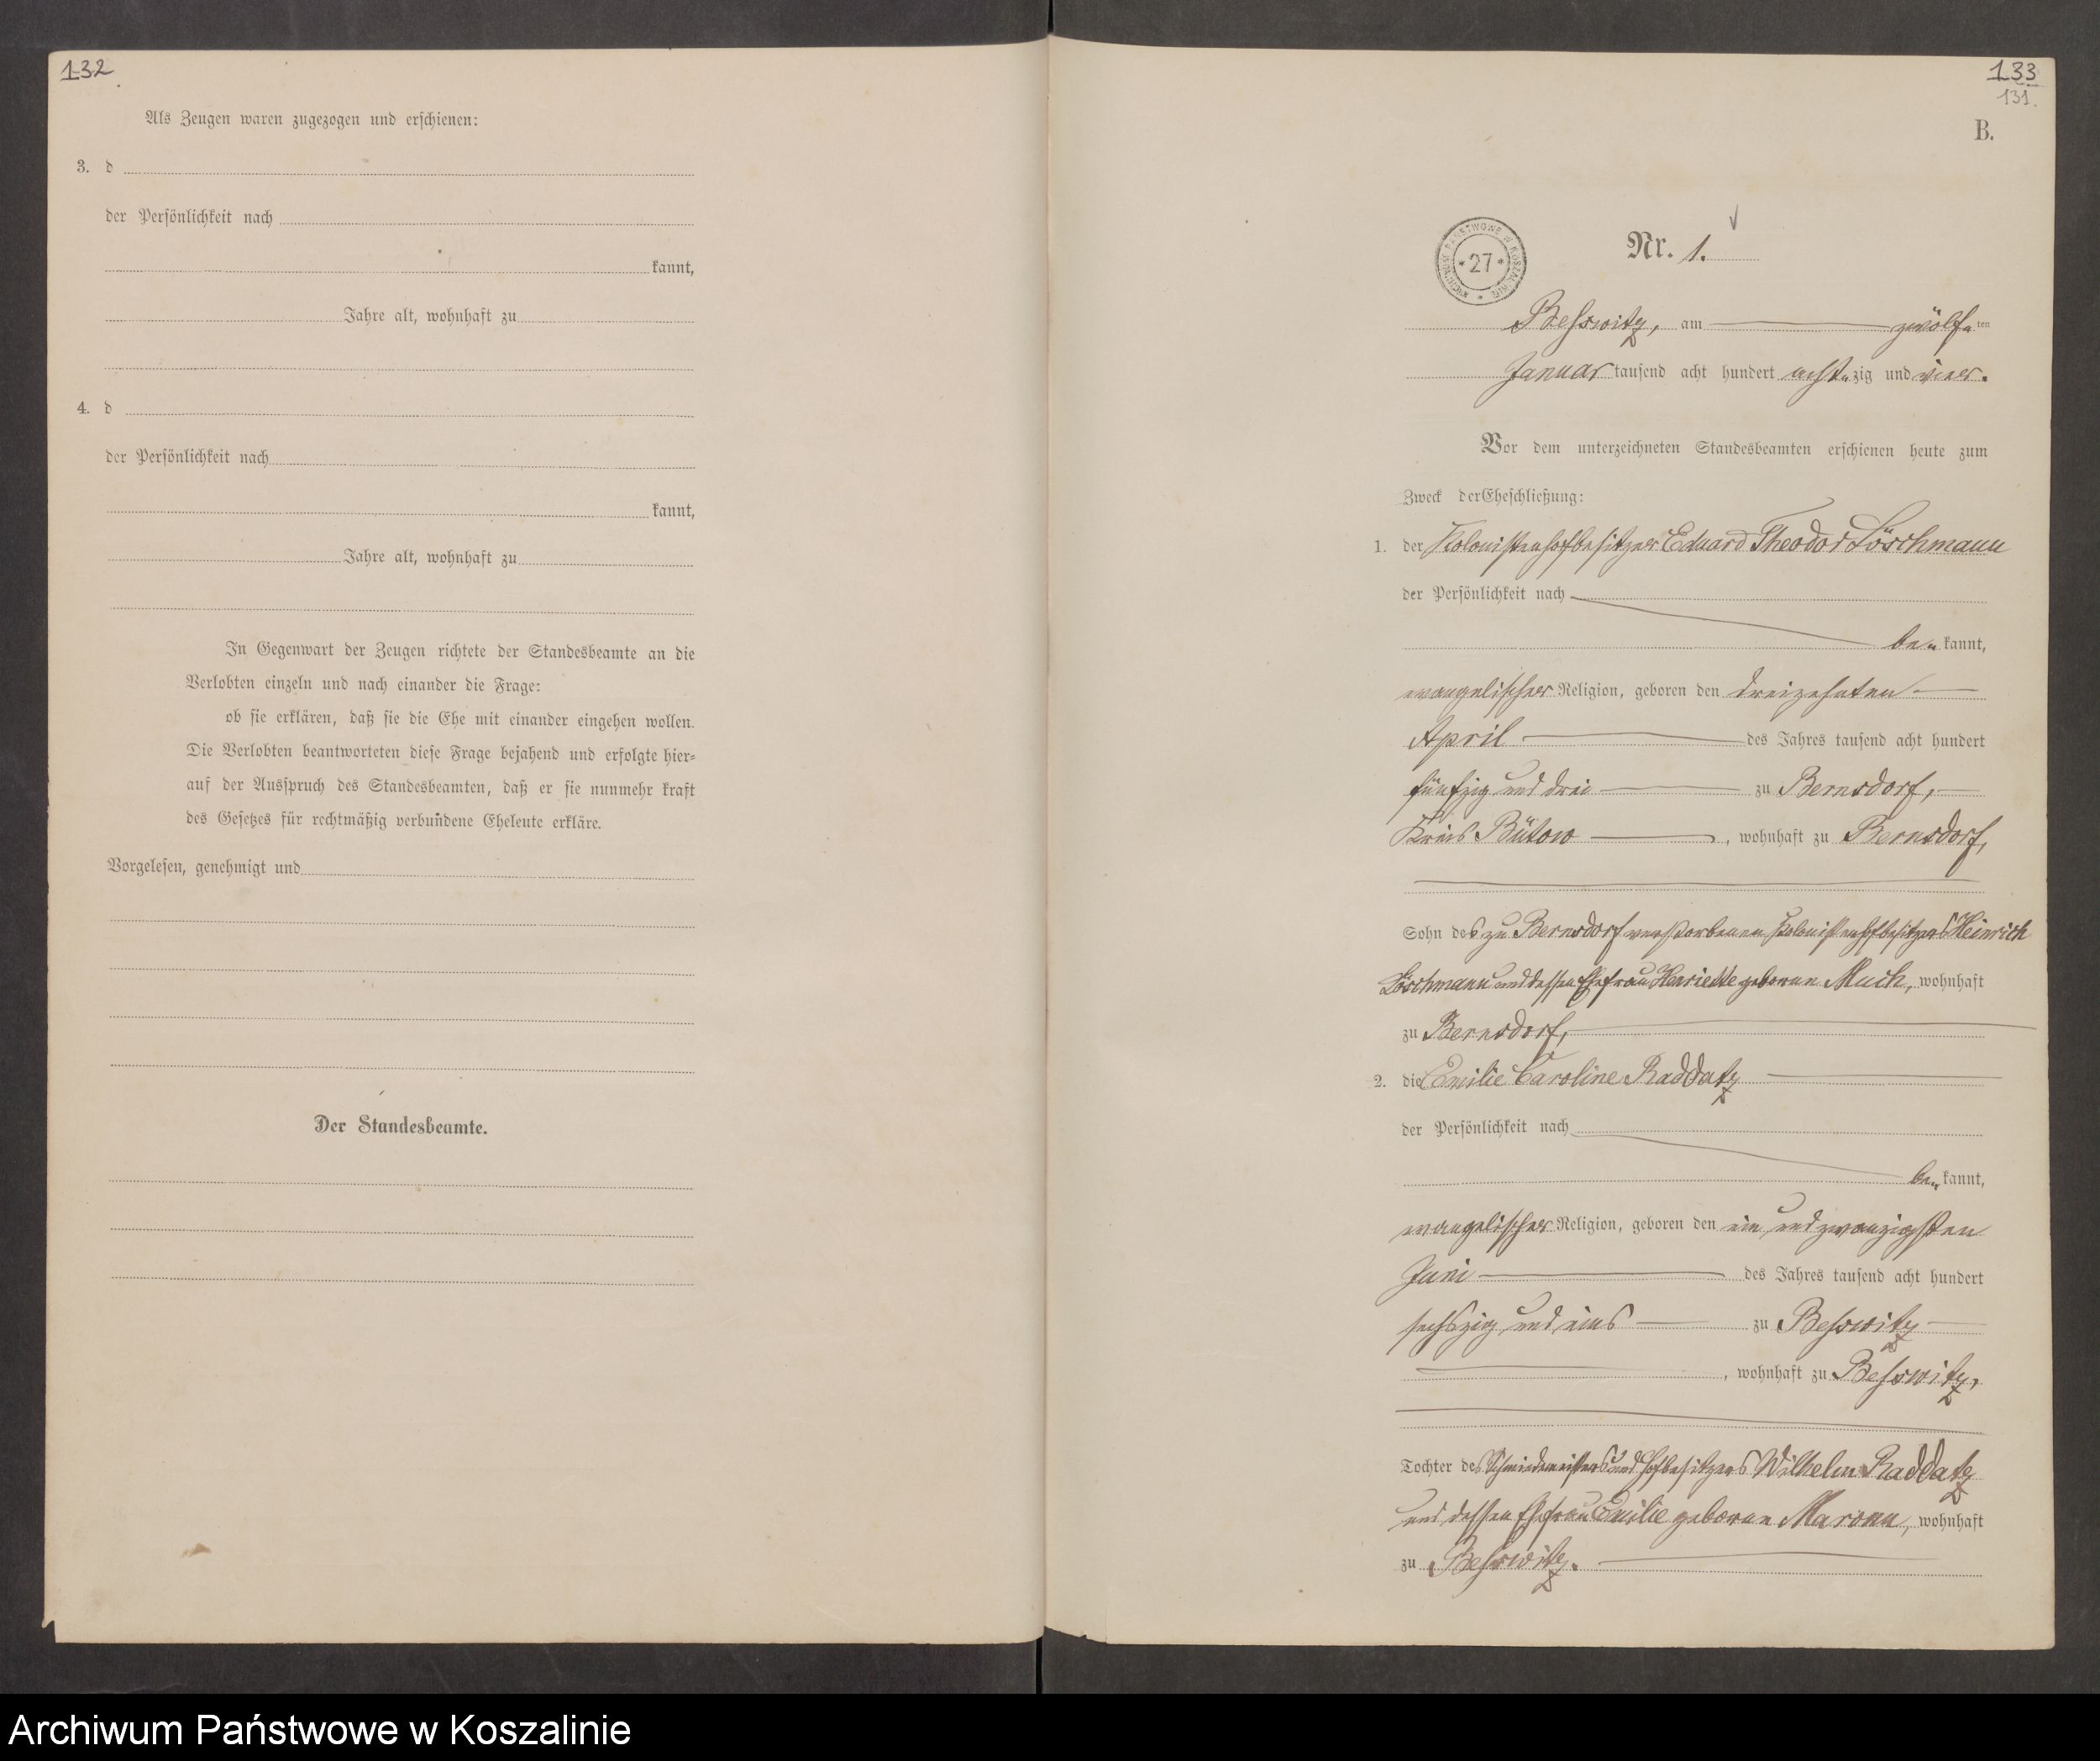 132
Als Zeugen waren zugezogen und erschienen:
3. d
der Persönlichkeit nach
kannt,
Jahre alt, wohnhaft zu
4. d
der Persönlichkeit nach
kannt,
Jahre alt, wohnhaft zu
In Gegenwart der Zeugen richtete der Standesbeamte an die
Verlobten einzeln und nach einander die Frage:
ob sie erklären, daß sie die Ehe mit einander eingehen wollen.
Die Verlobten beantworteten diese Frage bejahend und erfolgte hier-
auf der Ausspruch des Standesbeamten, daß er sie nunmehr kraft
des Gesetzes für rechtmäßig verbundene Eheleute erkläre.
Vorgelesen, genehmigt und
Der Standesbeamte.
133
131.
B.
ARCHIWUM PAŃSTWOWE W KOSZALINIE * 27 *
Nr. 1.
Besswitz, am zwölf ten
Januar tausend acht hundert acht zig und vier.
Vor dem unterzeichneten Standesbeamten erschienen heute zum
Zweck der Eheschließung:
1. der Kolonistenhofbesitzer Eduard Theodor Löschmann
der Persönlichkeit nach
be kannt,
evangelischer Religion, geboren den dreizehnten
April des Jahres tausend acht hundert
fünfzig und drei zu Bernsdorf,
Kreis Bütow, wohnhaft zu Bernsdorf,
Sohn des zu Bernsdorf verstorbenen Kolonistenhofbesitzers Heinrich
Löschmann und dessen Ehefrau Henriette geborene Much, wohnhaft
zu Bernsdorf,
2. die Emilie Caroline Raddatz
der Persönlichkeit nach
be kannt,
evangelischer Religion, geboren den ein und zwanzigsten
Juni des Jahres tausend acht hundert
sechszig und eins zu Besswitz
, wohnhaft zu Besswitz,
Tochter des Schmiedemeisters und Hofbesitzers Wilhelm Raddatz
und dessen Ehefrau Emilie geborene Maronn, wohnhaft
zu Besswitz.
Archiwum Państwowe w Koszalinie